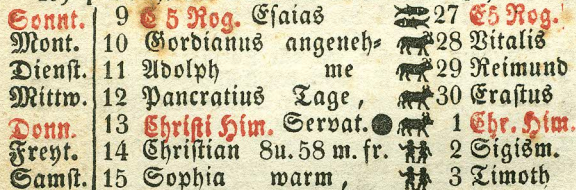 Sonnt. 9 E 5 Rog. Esaias 27 E5 Rog.
Mont. 10 Gordianus angeneh⸗ 28 Vitalis
Dienst. 11 Adolph me 29 Reimund
Mittw. 12 Pancratius Tage, 30 Erastus
Donn. 13 Christi Him. Servat. 1 Chr. Him.
Freyt. 14 Christian 8u. 58 m. fr. 2 Sigism.
Samst. 15 Sophia warm, 3 Timoth